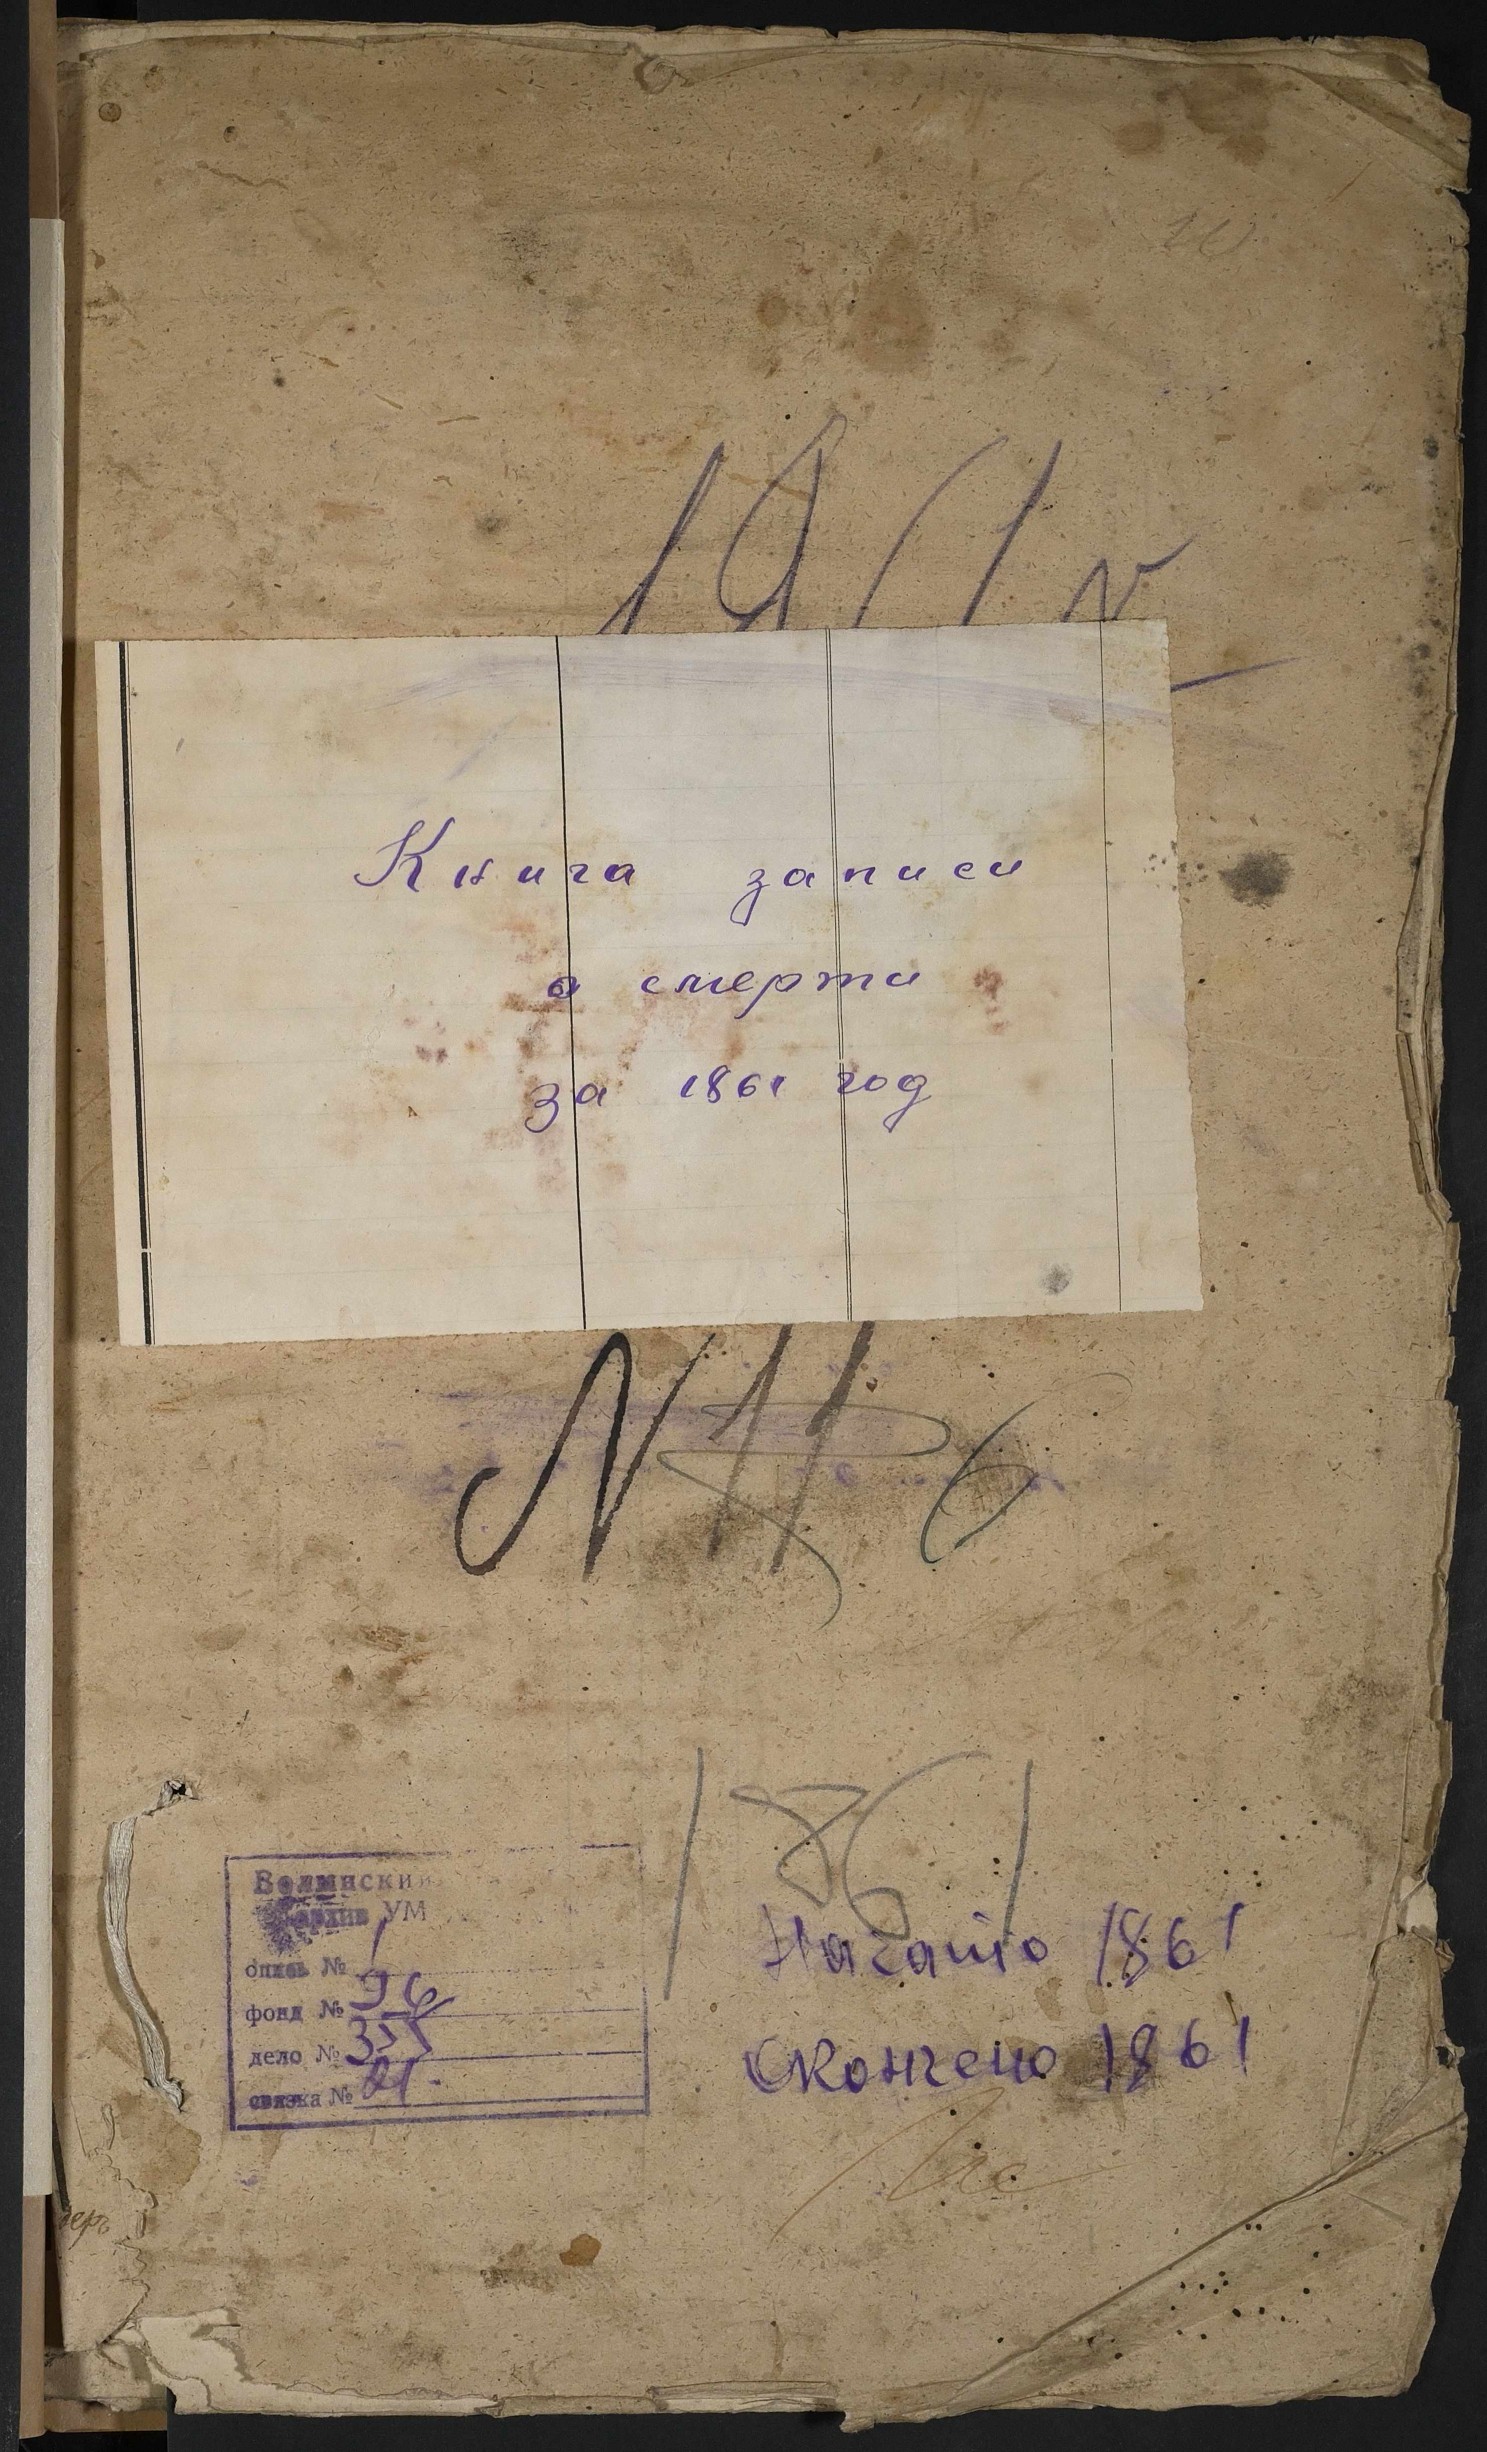 Книга записи
о смерти
за 1861 год
N
6
1861
Волынский
архив УМ
опись № 1
фонд № 96
дело № 355
связка № 21.
Начато 1861
Скончено 1861